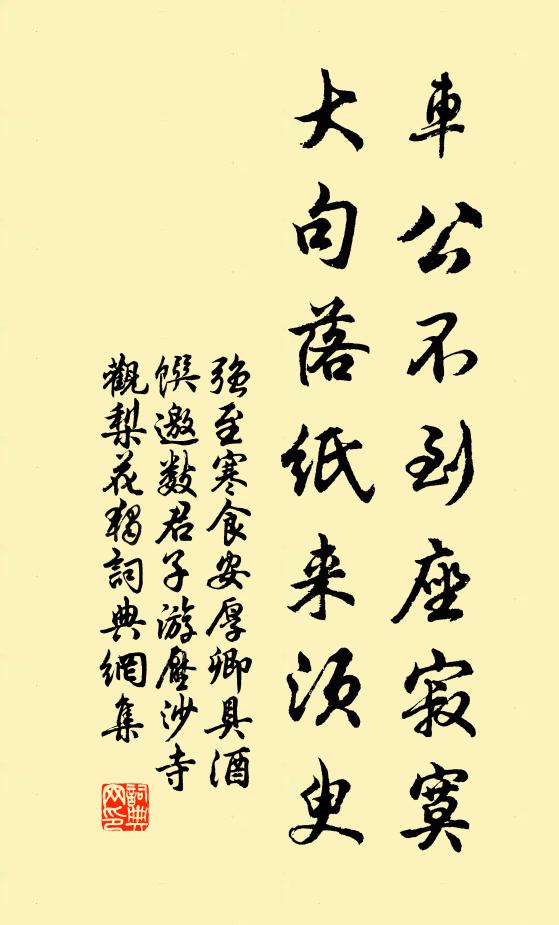 車公不到座寂寞
大句落纸来须臾
强至寒食安厚卿具酒
馔邀数君子游壓沙寺
觀梨花獨詞典網集
詞典网印